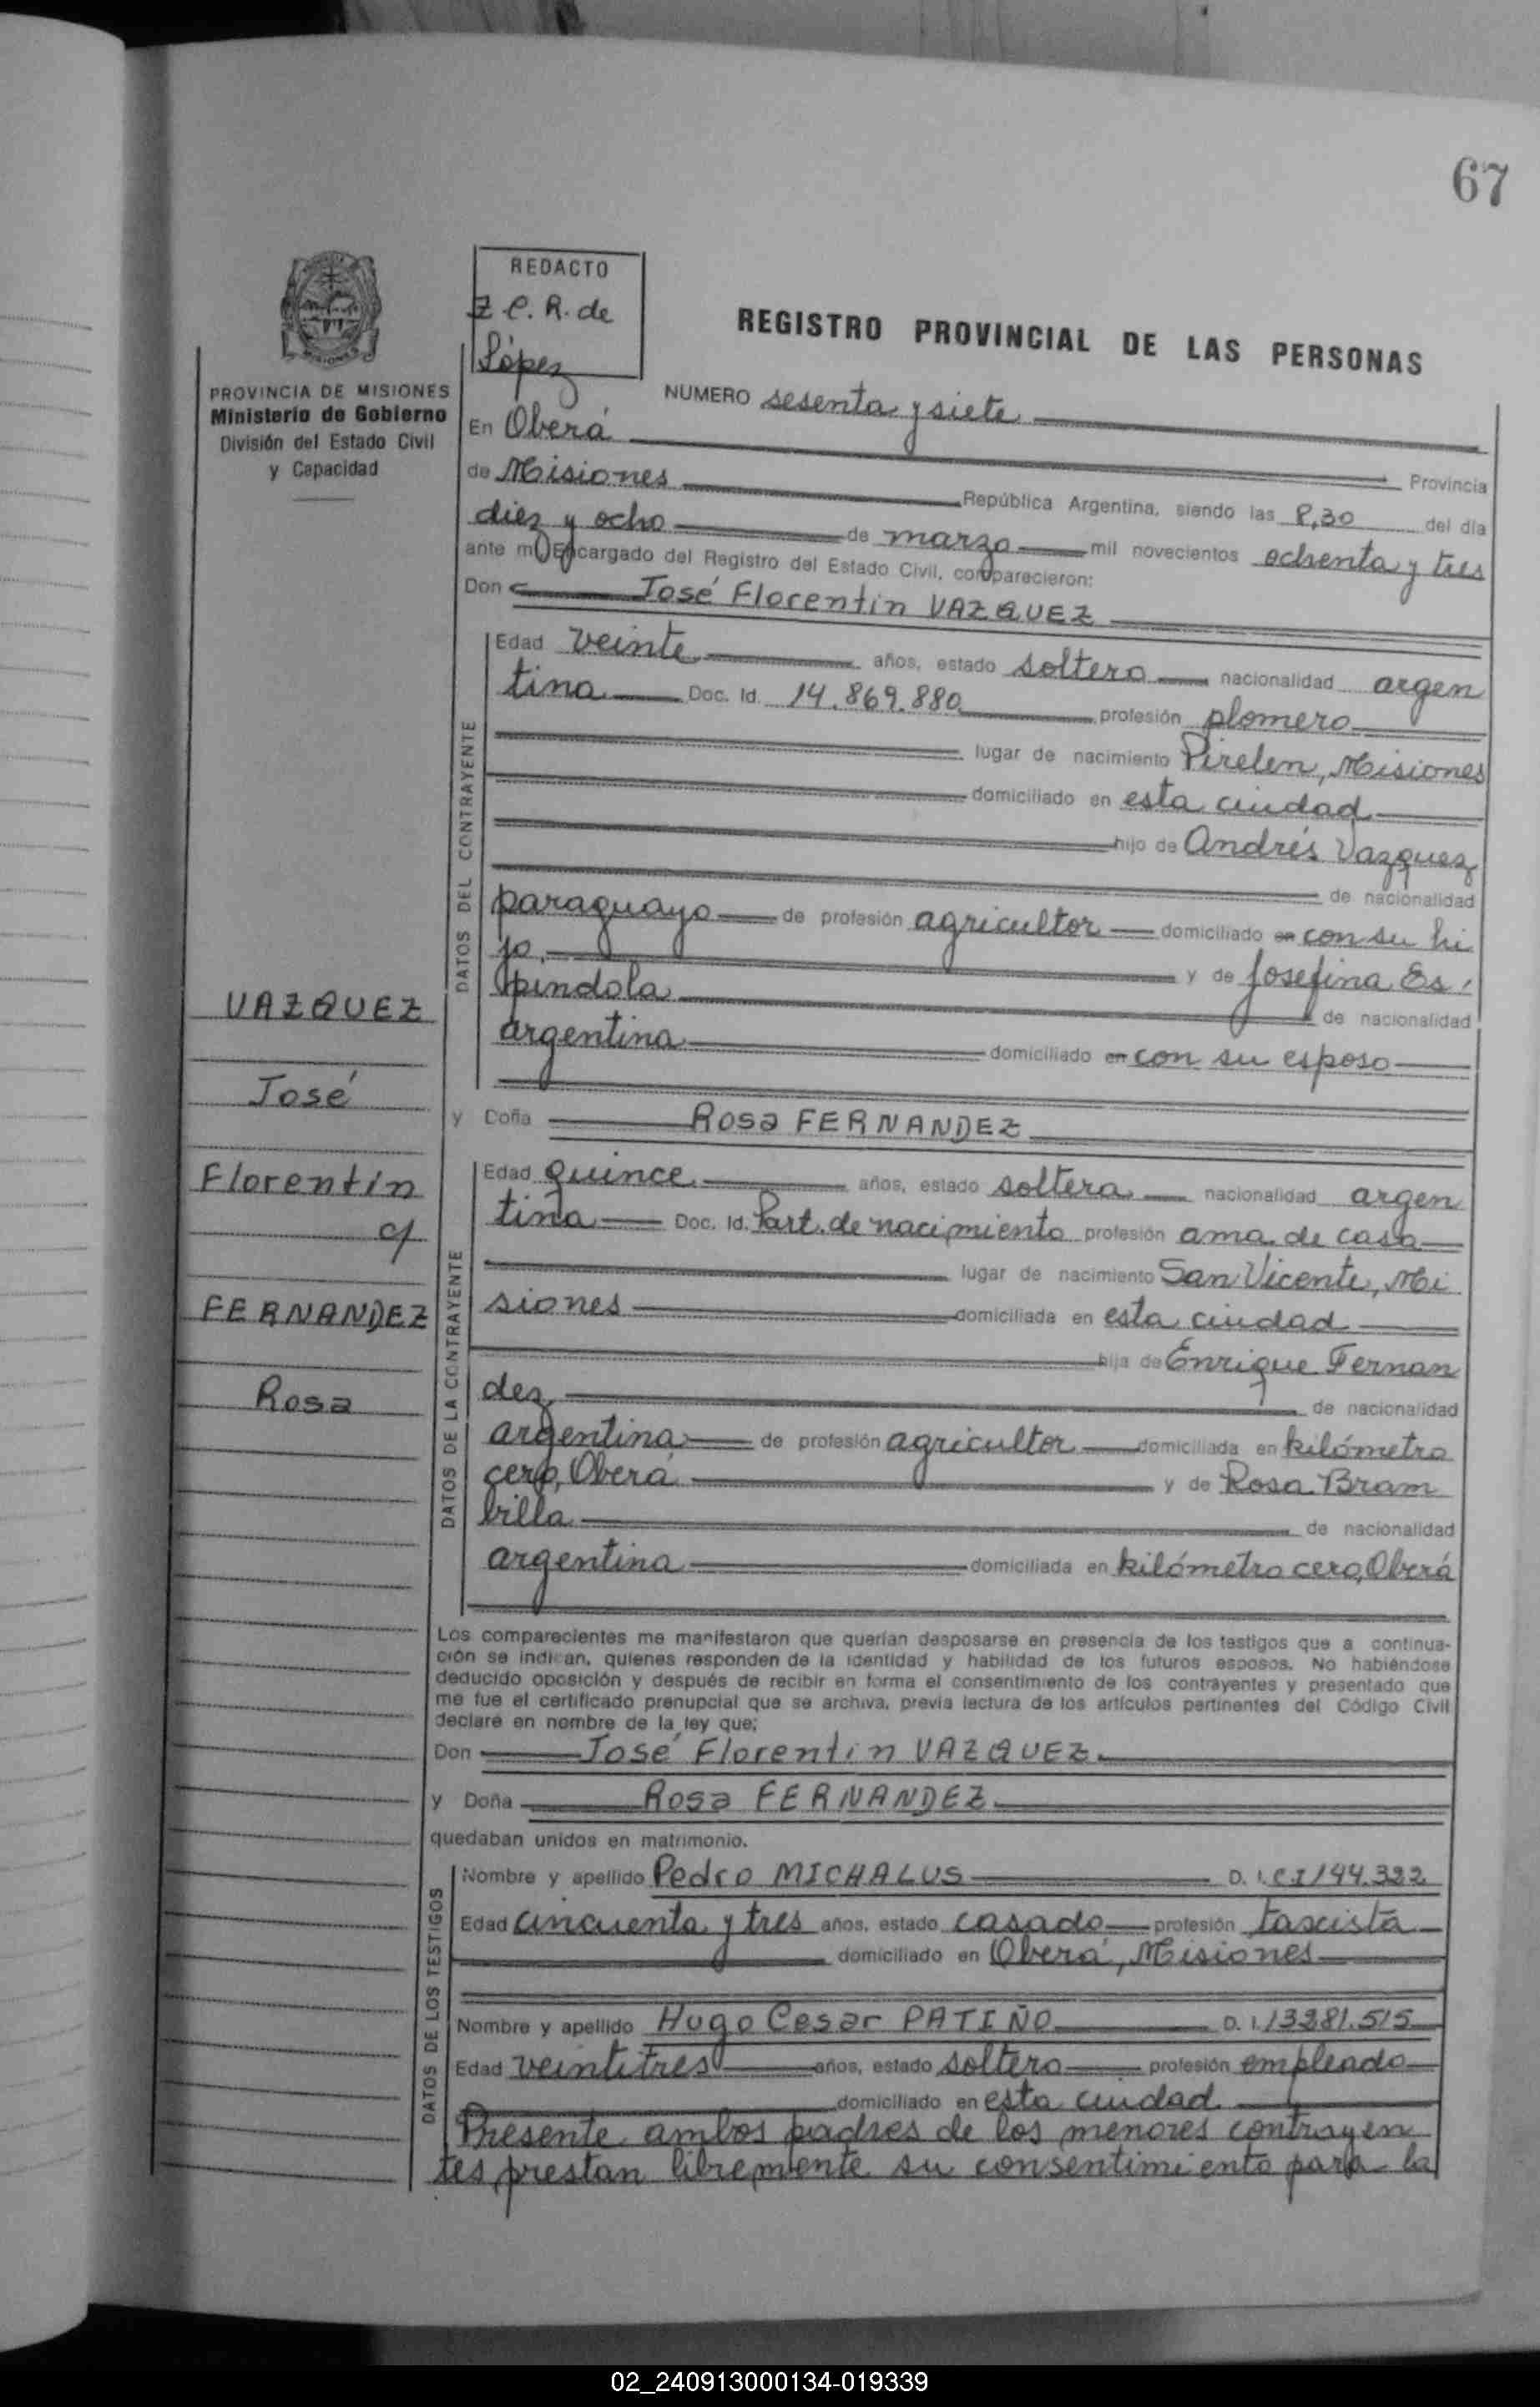 67
REDACTO
Z C. R. de
López
REGISTRO PROVINCIAL DE LAS PERSONAS
PROVINCIA DE MISIONES
Ministerio de Gobierno
División del Estado Civil
y Capacidad
NUMERO sesenta y siete
En Oberá Provincia
de Misiones República Argentina, siendo las 8,30 del día
diez y ocho de marzo mil novecientos ochenta y tres
ante mí Encargado del Registro del Estado Civil, comparecieron:
Don José Florentin VAZQUEZ
DATOS DEL CONTRAYENTE
Edad veinte años, estado soltero nacionalidad argen
tina Doc. Id. 14.869.880 profesión plomero
lugar de nacimiento Pirelen, Misiones
domiciliado en esta ciudad
hijo de Andrés Vazquez
de nacionalidad
paraguayo de profesión agricultor domiciliado en con su hi
jo. y de Josefina Es
pindola de nacionalidad
argentina domiciliado en con su esposo
y Doña Rosa FERNANDEZ
VAZQUEZ
José
Florentín
c/
FERNANDEZ
Rosa
DATOS DE LA CONTRAYENTE
Edad quince años, estado soltera nacionalidad argen
tina Doc. Id. Part. de nacimiento profesión ama de casa
lugar de nacimiento San Vicente, Mi
siones domiciliada en esta ciudad
hija de Enrique Fernan
dez de nacionalidad
argentina de profesión agricultor domiciliada en kilómetro
cero, Oberá y de Rosa Bram
billa de nacionalidad
argentina domiciliada en kilómetro cero, Oberá
Los comparecientes me manifestaron que querían desposarse en presencia de los testigos que a continua-
ción se indican, quienes responden de la identidad y habilidad de los futuros esposos. No habiéndose
deducido oposición y después de recibir en forma el consentimiento de los contrayentes y presentado que
me fue el certificado prenupcial que se archiva, previa lectura de los artículos pertinentes del Código Civil
declaré en nombre de la ley que:
Don José Florentin VAZQUEZ
y Doña Rosa FERNANDEZ
quedaban unidos en matrimonio.
DATOS DE LOS TESTIGOS
Nombre y apellido Pedro MICHALUS D. I. C.I 144.322
Edad cincuenta y tres años, estado casado profesión taxista
domiciliado en Oberá, Misiones
Nombre y apellido Hugo Cesar PATIÑO D. I. 13381.515
Edad veintitres años, estado soltero profesión empleado
domiciliado en esta ciudad
Presente ambos padres de los menores contrayen
tes prestan libremente su consentimiento para la
02_240913000134-019339